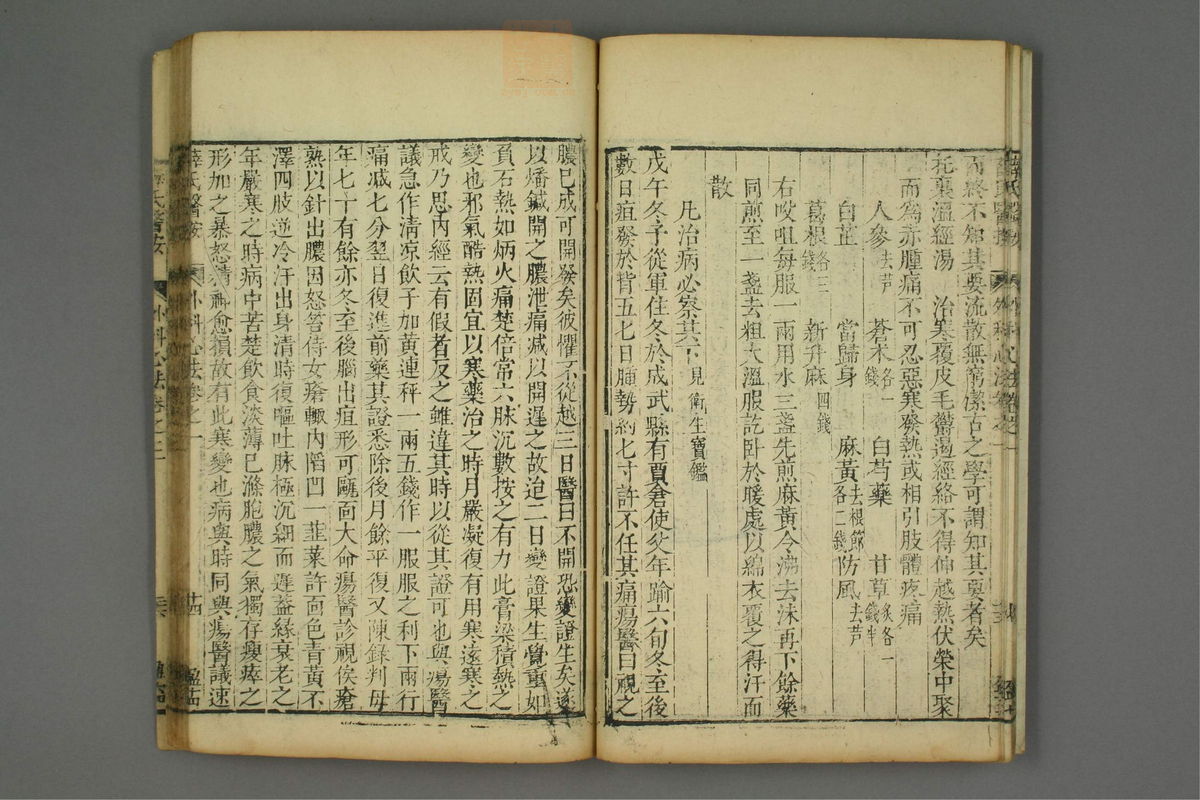 而終不知其要流散無窮潔古之學可謂知其要者矣
托裏溫經湯　治寒覆皮毛鬱遏經絡不得伸越熱伏榮中聚
而為赤腫痛不可忍惡寒發熱或相引肢體疼痛
人參去芦　蒼朮各一錢　白芍藥　甘草炙各一錢半
白芷　當歸身　麻黃去根節各二錢　防風去芦
葛根各三錢　新升麻四錢
右㕮咀每服一兩用水三盞先煎麻黃令沸去沫再下餘藥
同煎至一盞去粗大溫服訖卧於暖處以綿衣覆之得汗而
散
凡治病必察其下見衛生寶鑑
戊午冬予從軍住冬於成武縣有賈倉使父年踰六旬冬至後
數日疽發於背五七日腫勢約七寸許不任其痛瘍醫曰視之
膿已成可開發矣彼懼不從越三日醫曰不開恐變證生矣遂
以燔鍼開之膿泄痛減以開遲之故迨二日變證果生覺重如
負石熱如炳火痛楚倍常六脉沉數按之有力此膏粱積熱之
變也邪氣酷熱固宜以寒藥治之時月嚴凝復有用寒遠寒之
戒乃思內經云有假者反之雖違其時以從其證可也與瘍醫
議急作清凉飲子加黃連秤一兩五錢作一服服之利下兩行
痛減七分翌日復進前藥其證悉除後月餘平復又陳錄判母
年七十有餘亦冬至後腦出疽形可甌面大命瘍醫診視俟瘡
熟以針出膿因怒笞侍女瘡輙內陷凹一韮葉許面色青黃不
澤四肢逆冷汗出身清時復嘔吐脉極沉細而遲葢緣衰老之
年嚴寒之時病中苦楚飲食淡薄已滌肥膿之氣獨存瘦瘁之
形加之暴怒精神愈損故有此寒變也病與時同與瘍醫議速
薛氏醫按　外科心法卷之二